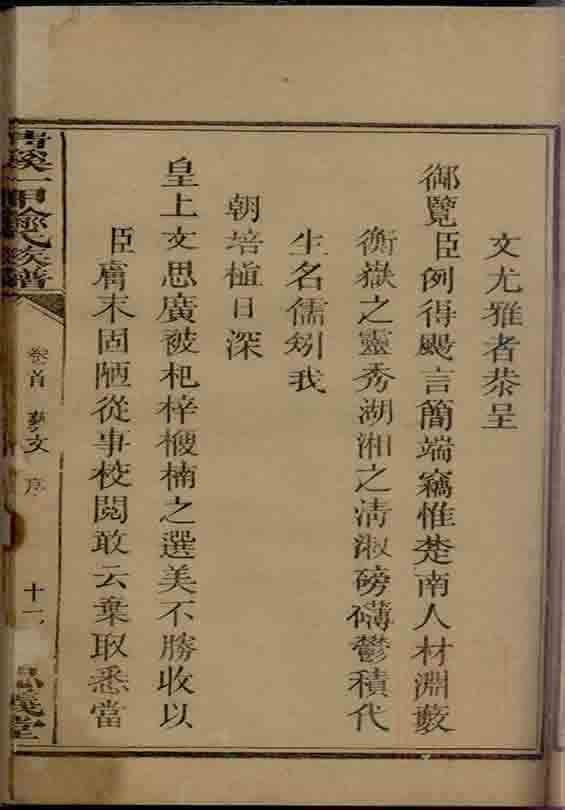 文尤雅者恭呈
御覽臣例得颺言簡端竊惟楚南人材淵藪
衡嶽之靈秀湖湘之清淑磅礴鬱積代
生名儒矧我
朝培植日深
皇上文思廣被杞梓楩楠之選美不勝收以
臣膚末固陋從事校閱敢云棄取悉當
一甲氏族譜
卷首 藝文 序
十一
義堂